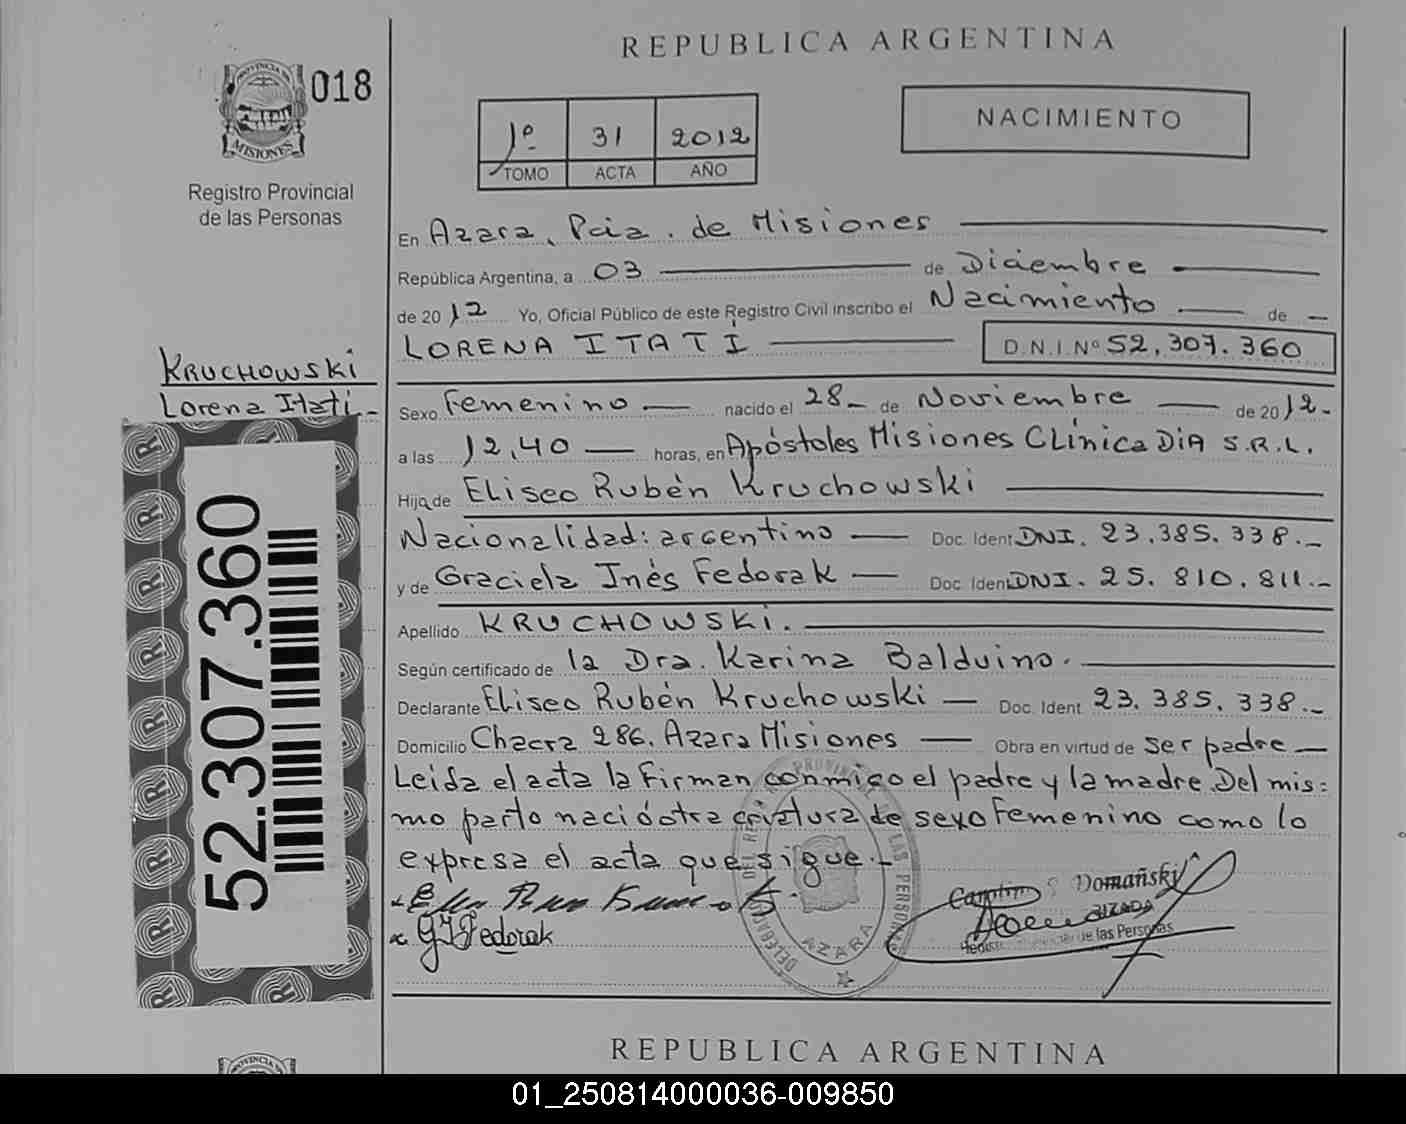 REPUBLICA ARGENTINA
PROVINCIA DE
MISIONES
018
Registro Provincial
de las Personas
1º 31 2012
TOMO ACTA AÑO
NACIMIENTO
En Azara, Pcia. de Misiones
República Argentina, a 03 de Diciembre
de 2012 Yo, Oficial Público de este Registro Civil inscribo el Nacimiento de
LORENA ITATÍ D.N.I.Nº 52.307.360
KRUCHOWSKI
Lorena Itatí
Sexo Femenino nacido el 28 de Noviembre de 2012
a las 12,40 horas, en Apóstoles Misiones CLínica DIA S.R.L.
Hija de ELiseo Rubén Kruchowski
Nacionalidad: argentino Doc. Ident DNI. 23.385.338.
y de Graciela Inés Fedorak Doc. Ident DNI. 25.810.811.
Apellido KRUCHOWSKI.
Según certificado de la Dra. Karina Balduino.
Declarante ELiseo Rubén Kruchowski Doc. Ident. 23.385.338.
Domicilio Chacra 286. Azara Misiones Obra en virtud de ser padre
Leída el acta la firman conmigo el padre y la madre. Del mis=
mo parto nació otra criatura de sexo femenino como lo
expresa el acta que sigue.
52.307.360
Fedorak
Domañski
de las Personas
AZARA
REPUBLICA ARGENTINA
PROVINCIA
01_250814000036-009850